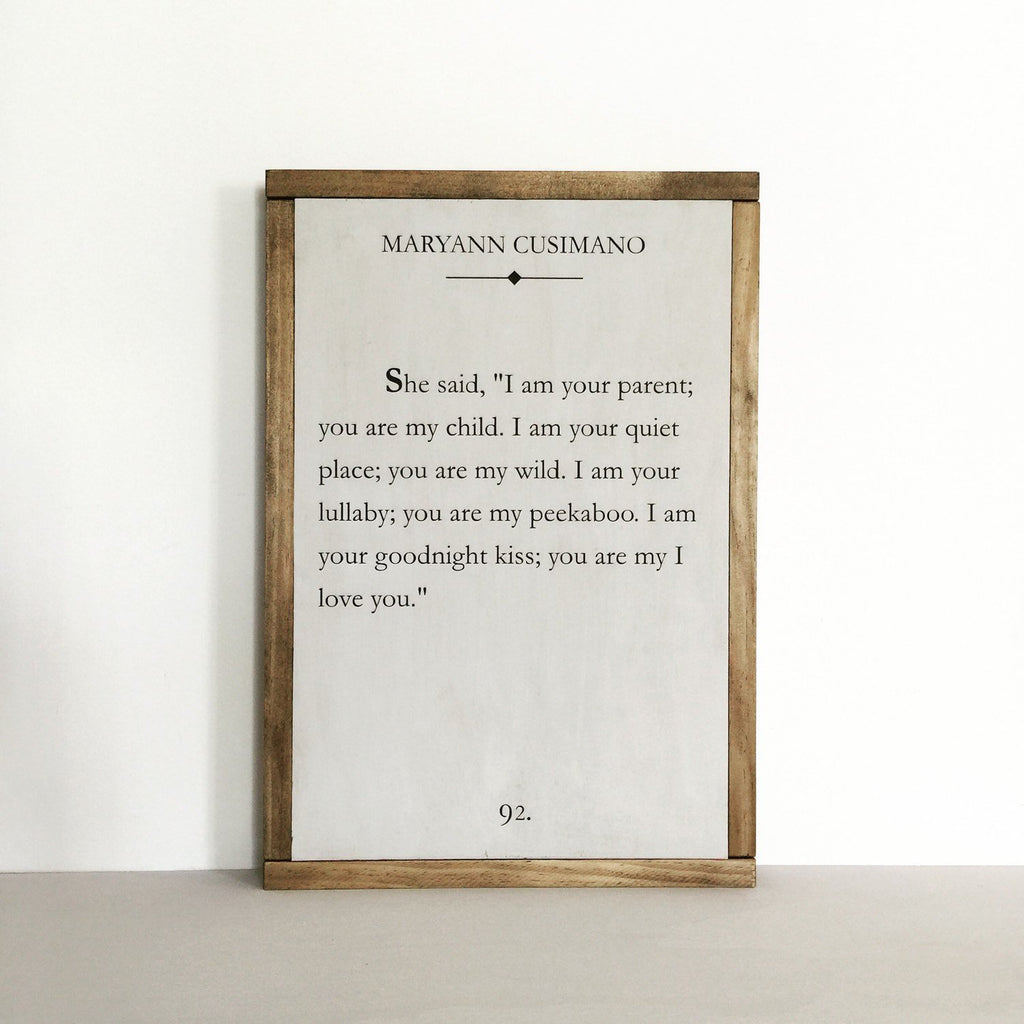 MARYANN CUSIMANO
She said, "I am your parent;
you are my child. I am your quiet
place; you are my wild. I am your
lullaby; you are my peekaboo. I am
your goodnight kiss; you are my I
love you."
92.